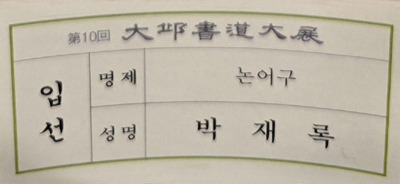 第10回 大邱書道大展
입선
명제 논어구
성명 박재록